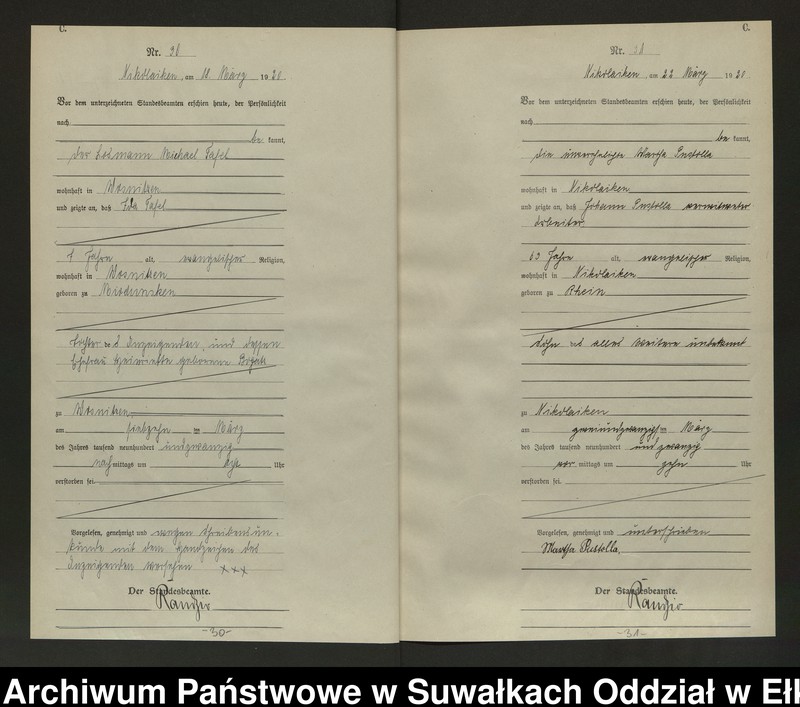 C.
Nr. 30
Nikolaiken, am 18. März 1920
Vor dem unterzeichneten Standesbeamten erschien heute, der Persönlichkeit
nach
be kannt,
der Losmann Michael
wohnhaft in Wosnitzen
und zeigte an, daß Ida
1 Jahre alt, evangelischer Religion,
wohnhaft in Wosnitzen
geboren zu
Tochter des Anzeigenden, und dessen
Ehefrau Henriette geborene
zu Wosnitzen
am siebzehn ten März
des Jahres tausend neunhundert und zwanzig
nach mittags um Uhr
verstorben sei.
Vorgelesen, genehmigt und wegen Schreibensun-
kunde mit dem Handzeichen des
Anzeigenden versehen xxx
Der Standesbeamte.
-30-
C.
Nr. 31
Nikolaiken, am 22 März 1920
Vor dem unterzeichneten Standesbeamten erschien heute, der Persönlichkeit
nach
be kannt,
die unverehelichte Martha Pustolla
wohnhaft in Nikolaiken
und zeigte an, daß Johann Pustolla verwitweter
Arbeiter,
63 Jahre alt, evangelischer Religion,
wohnhaft in Nikolaiken
geboren zu Rhein
Sohn alles Weitere unbekannt
zu Nikolaiken
am zweiundzwanzigsten März
des Jahres tausend neunhundert und zwanzig
vor mittags um zehn Uhr
verstorben sei.
Vorgelesen, genehmigt und unterschrieben
Martha Pustolla,
Der Standesbeamte.
-31-
Archiwum Państwowe w Suwałkach Oddział w Ełk